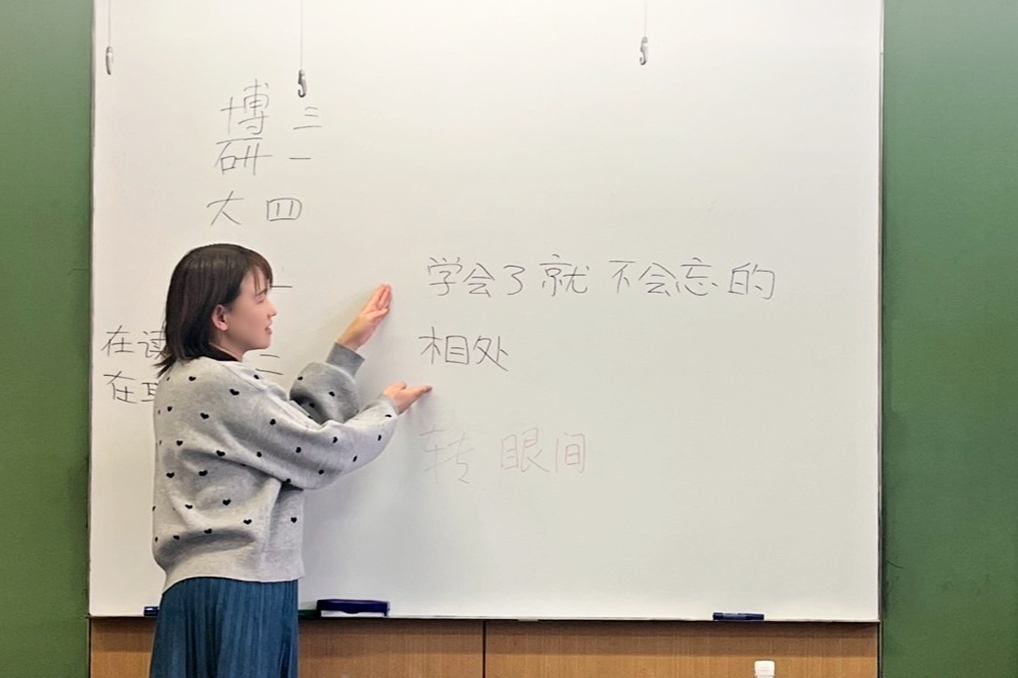 博三
研一
大四
学会了就不会忘的
在读
二
相处
在
转眼间